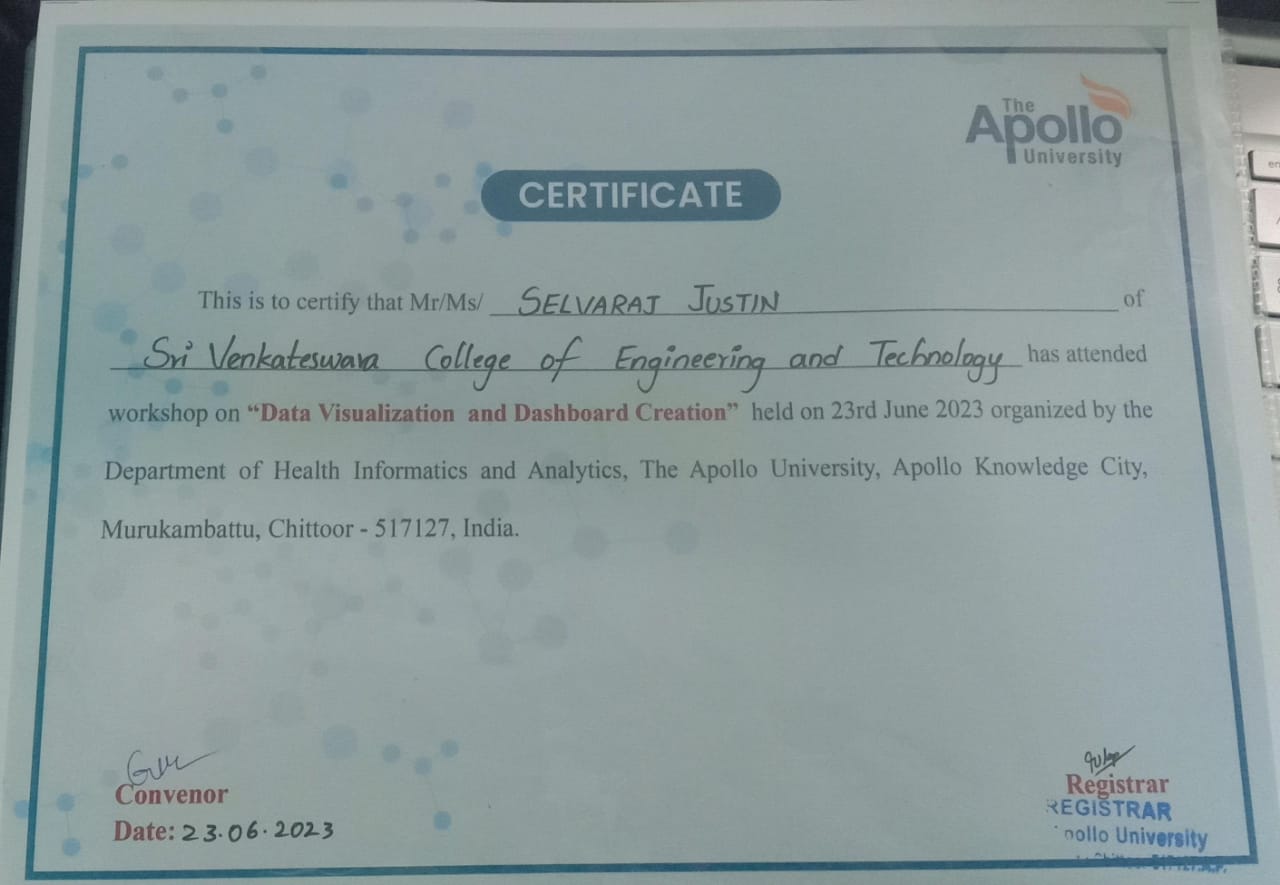 The
Apollo
University
CERTIFICATE
This is to certify that Mr/Ms/ SELVARAJ JUSTIN of
Sri Venkateswara College of Engineering and Technology has attended
workshop on “Data Visualization and Dashboard Creation” held on 23rd June 2023 organized by the
Department of Health Informatics and Analytics, The Apollo University, Apollo Knowledge City,
Murukambattu, Chittoor - 517127, India.
Convenor
Date: 23.06.2023
Registrar
REGISTRAR
pollo University